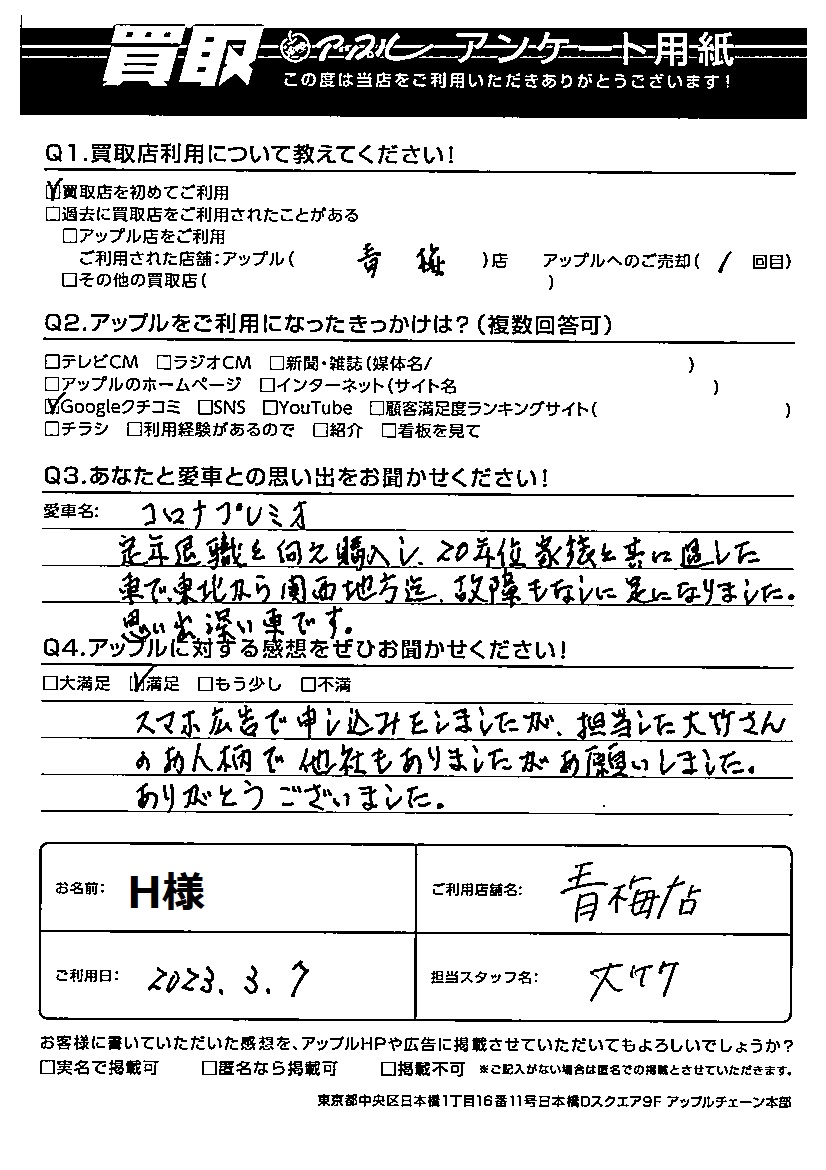 買取 アップル アンケート用紙
この度は当店をご利用いただきありがとうございます!
Q1.買取店利用について教えてください!
☑買取店を初めてご利用
□過去に買取店をご利用されたことがある
□アップル店をご利用
ご利用された店舗:アップル( 青梅 )店 アップルへのご売却( 1 回目)
□その他の買取店( )
Q2.アップルをご利用になったきっかけは?(複数回答可)
□テレビCM □ラジオCM □新聞・雑誌(媒体名/ )
□アップルのホームページ □インターネット(サイト名 )
☑Googleクチコミ □SNS □YouTube □顧客満足度ランキングサイト( )
□チラシ □利用経験があるので □紹介 □看板を見て
Q3.あなたと愛車との思い出をお聞かせください!
愛車名: コロナプレミオ
定年退職を向え購入し、20年位家族と共に過した
車で、東北から関西地方迄、故障もなしに足になりました。
思い出深い車です。
Q4.アップルに対する感想をぜひお聞かせください!
□大満足 ☑満足 □もう少し □不満
スマホ広告で申し込みをしましたが、担当した大竹さん
のお人柄で他社もありましたがお願いしました。
ありがとうございました。
お名前: H様 ご利用店舗名: 青梅店
ご利用日: 2023.3.7 担当スタッフ名: 大竹
お客様に書いていただいた感想を、アップルHPや広告に掲載させていただいてもよろしいでしょうか?
□実名で掲載可 □匿名なら掲載可 □掲載不可 ※ご記入がない場合は匿名での掲載とさせていただきます。
東京都中央区日本橋1丁目16番11号日本橋Dスクエア9F アップルチェーン本部